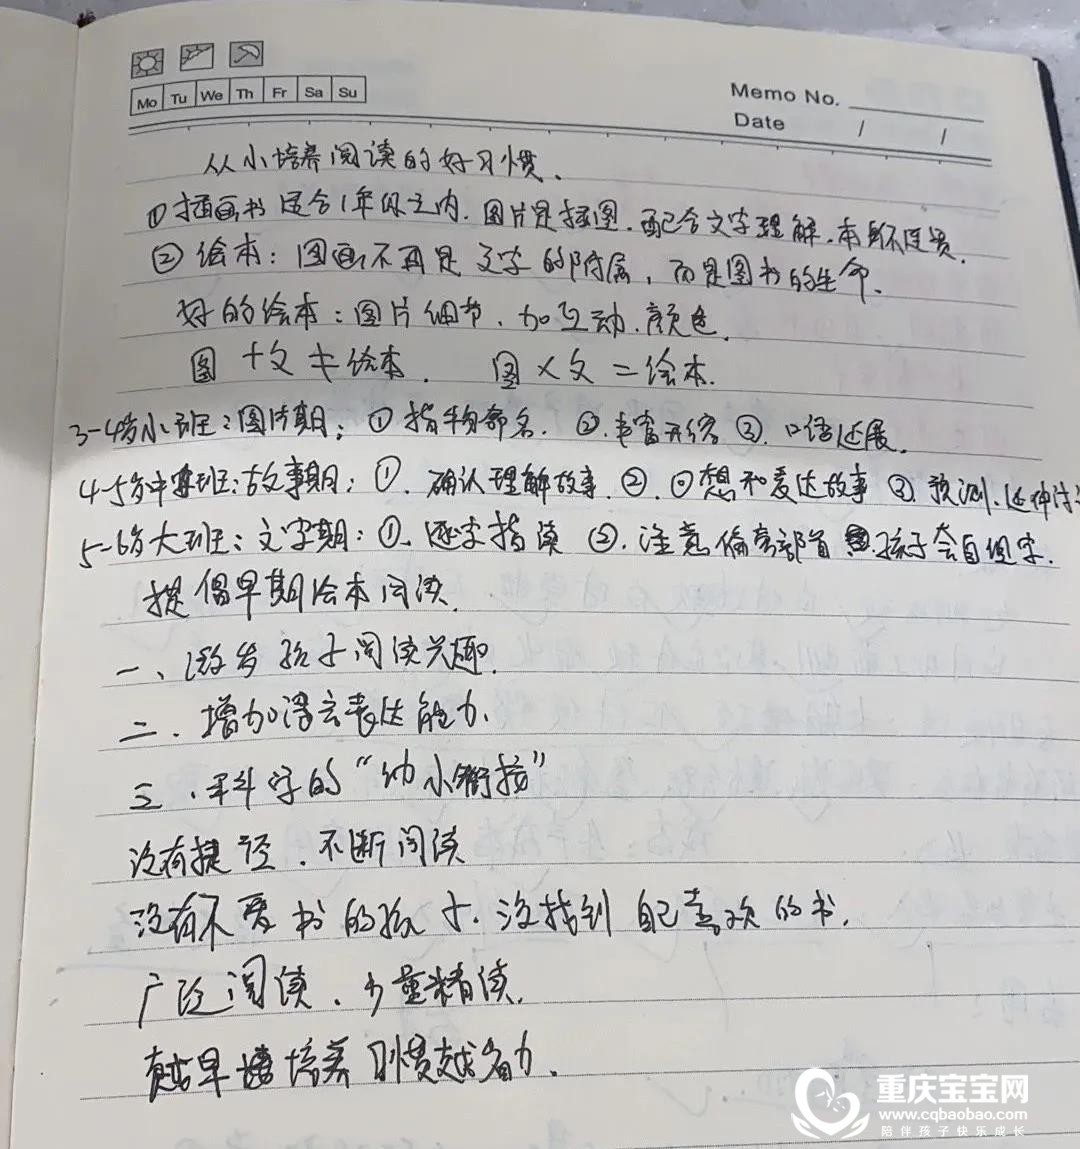 Mo Tu We Th Fr Sa Su
Memo No.
Date / /
从小培养阅读的好习惯.
①插画书 适合1年级之内. 图片是插图. 配合文字理解. 本身不连贯.
②绘本: 图画不再是文字的附属, 而是图书的生命.
好的绘本: 图片细节. 加互动. 颜色.
图+文≠绘本. 图×文=绘本.
3-4岁小班: 图片期: ① 指物命名. ②. 丰富开绘 ③. 口语延展.
4-5岁中班: 故事期: ①. 确认理解故事. ②. 回想和表达故事 ③. 预测. 延伸
5-6岁大班: 文字期: ①. 逐字指读 ②. 注意偏旁部首 孩子会自组字.
提倡早期绘本阅读.
一、激发孩子阅读兴趣.
二、增加语言表达能力.
三、科学的“幼小衔接”
没有捷径. 不断阅读
没有不爱书的孩子. 没找到自己喜欢的书.
广泛阅读. 少量精读.
越早培养习惯越省力.
重庆宝宝网
www.cqbaobao.com
陪伴孩子快乐成长